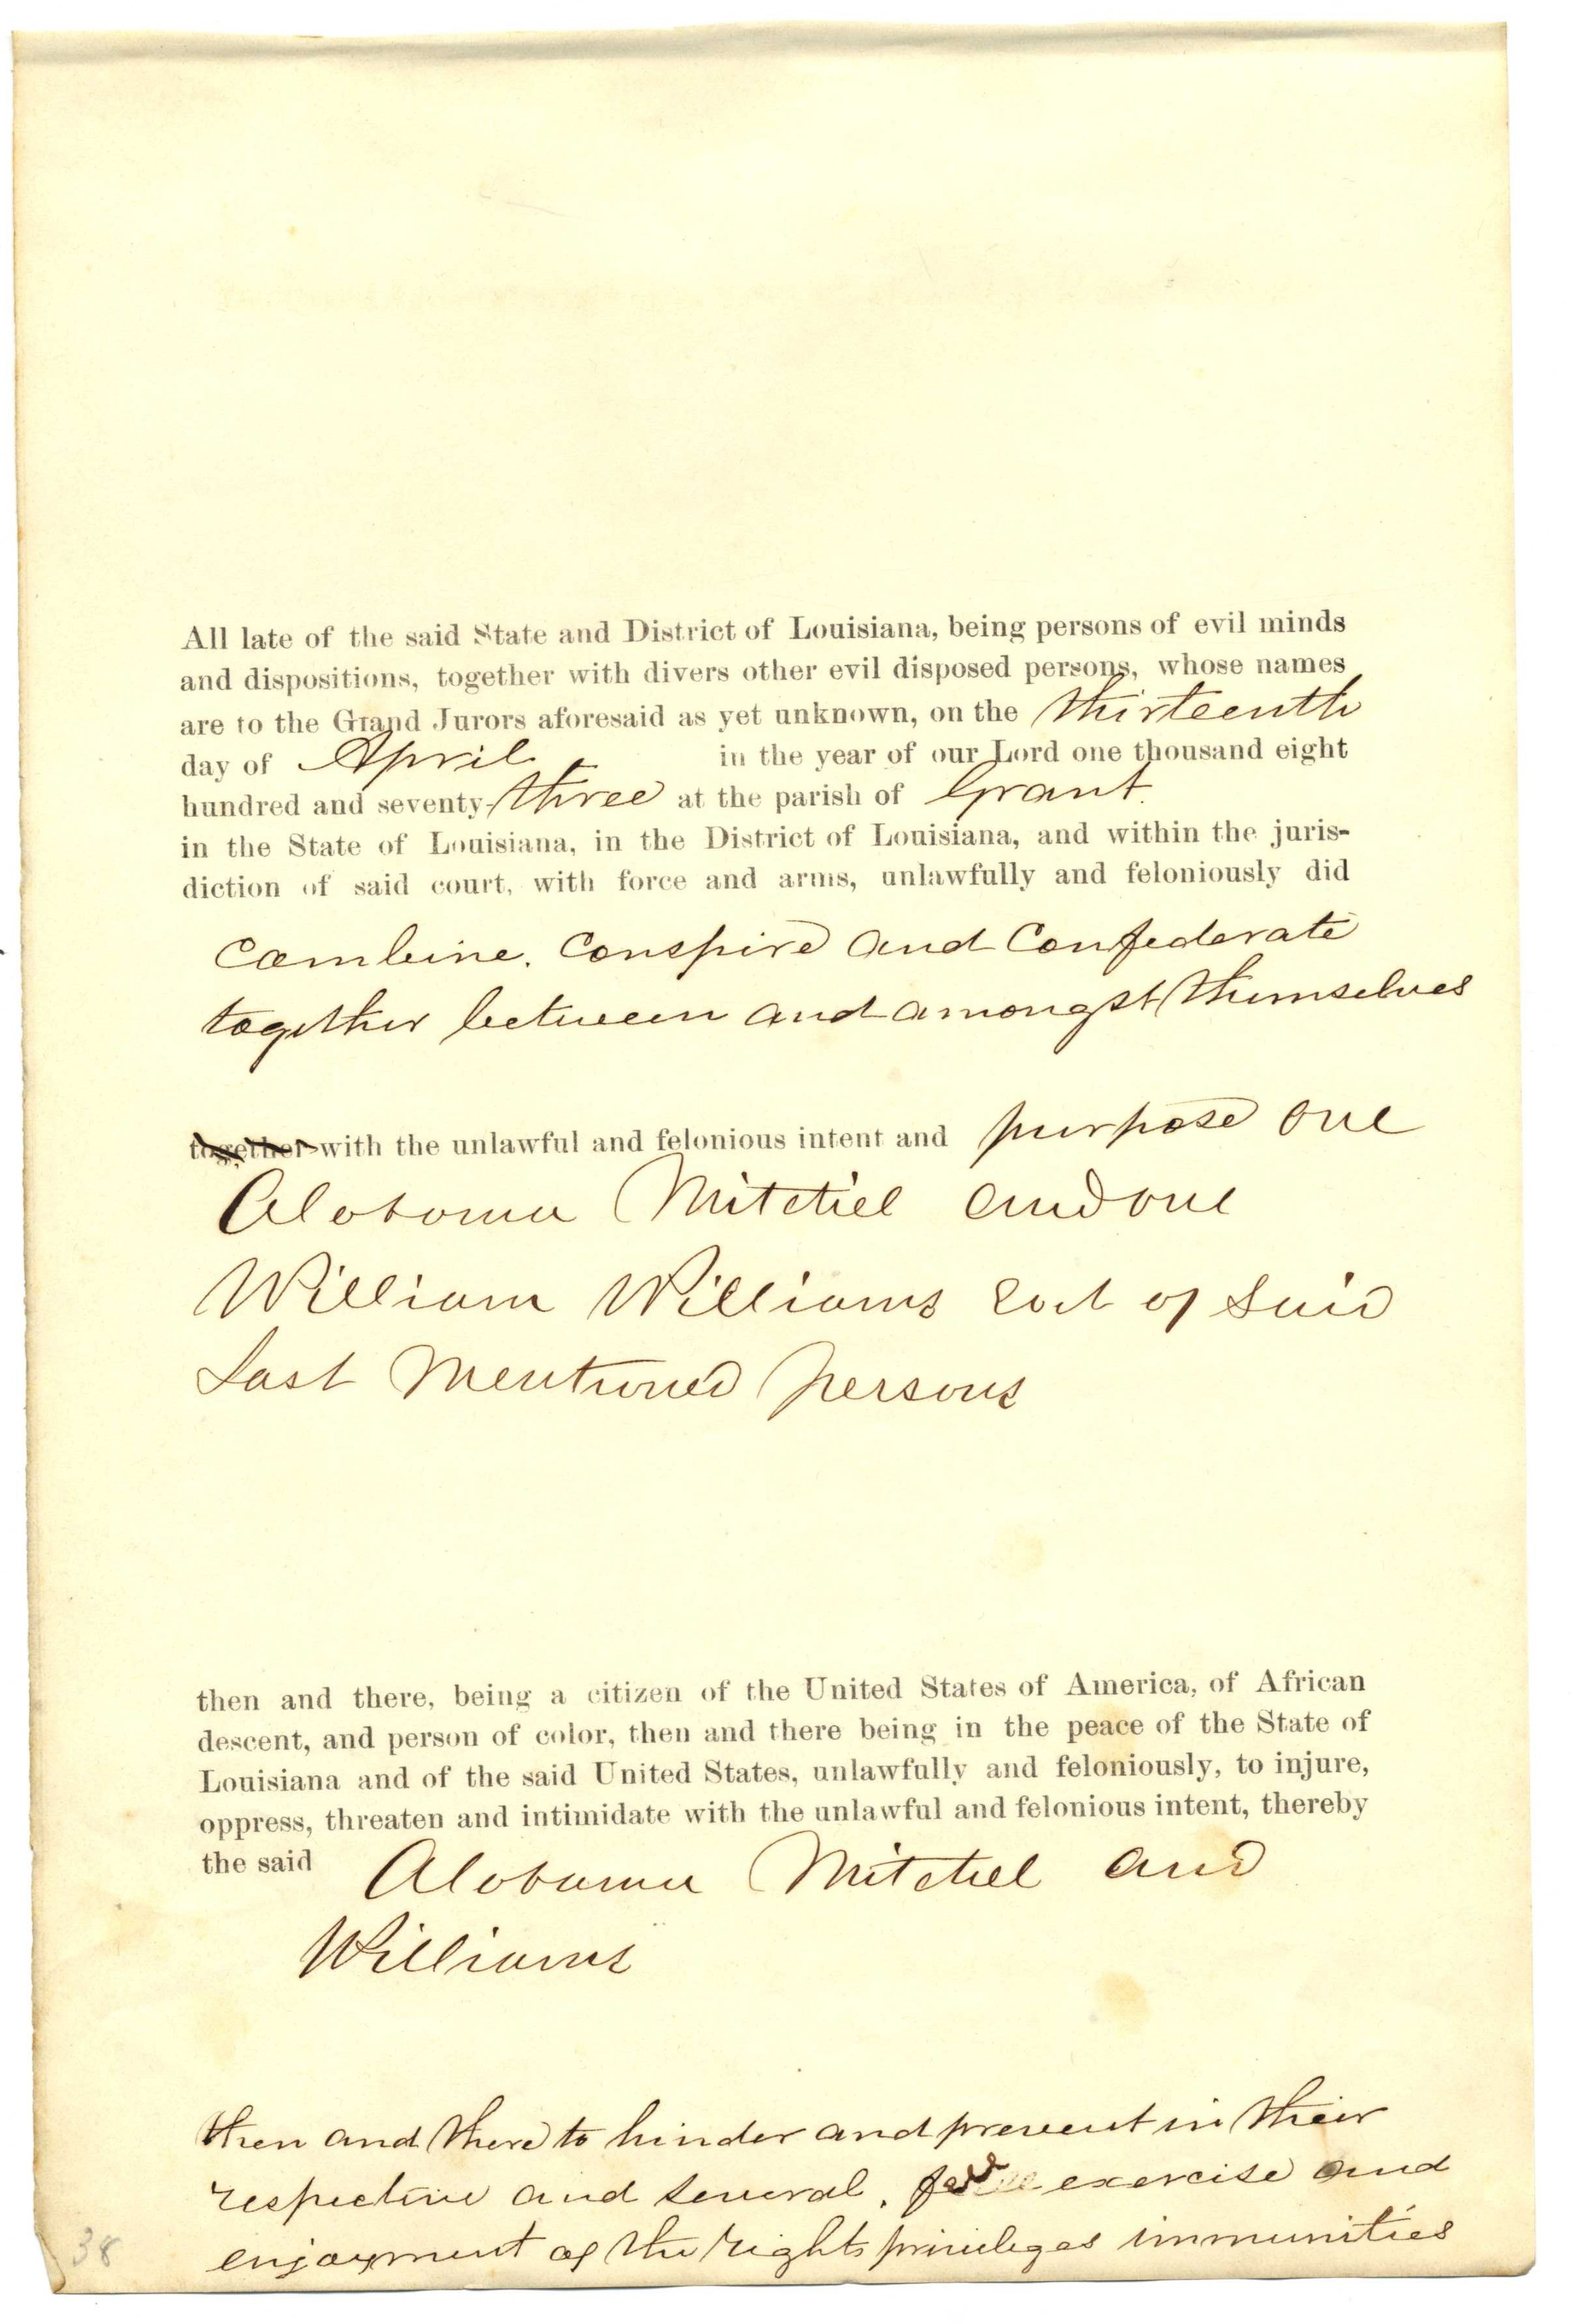 All late of the said State and District of Louisiana, being persons of evil minds
and dispositions, together with divers other evil disposed persons, whose names
are to the Grand Jurors aforesaid as yet unknown, on the thirteenth
day of April in the year of our Lord one thousand eight
hundred and seventy-three at the parish of Grant.
in the State of Louisiana, in the District of Louisiana, and within the juris-
diction of said court, with force and arms, unlawfully and feloniously did
combine. Conspire and Confederate
together between and amongst themselves
together with the unlawful and felonious intent and purpose one
Alabama Mitchel and one
William Williams each of said
last mentioned persons
then and there, being a citizen of the United States of America, of African
descent, and person of color, then and there being in the peace of the State of
Louisiana and of the said United States, unlawfully and feloniously, to injure,
oppress, threaten and intimidate with the unlawful and felonious intent, thereby
the said Alabama Mitchel and
Williams
then and there to hinder and prevent in their
respective and several, exercise and
enjoyment of the rights privileges immunities
38